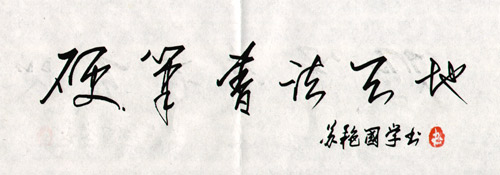 硬筆書法天地
苏艳國学书